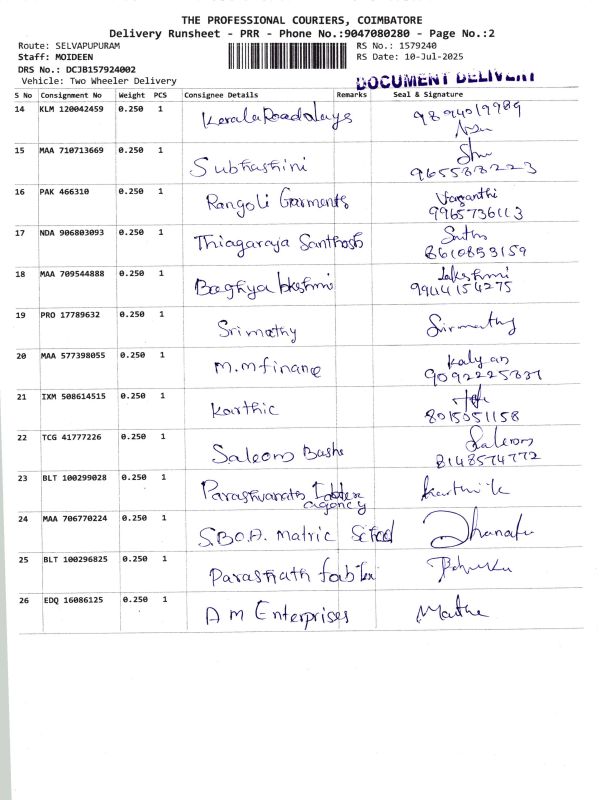 THE PROFESSIONAL COURIERS, COIMBATORE
Delivery Runsheet - PRR - Phone No.:9047080280 - Page No.:2
Route: SELVAPUPURAM
RS No.: 1579240
Staff: MOIDEEN
RS Date: 10-Jul-2025
DRS No.: DCJB157924002
Vehicle: Two Wheeler Delivery
DOCUMENT DELIVERY
S No Consignment No Weight PCS Consignee Details Remarks Seal & Signature
14 KLM 120042459 0.250 1 Kerala Roadways 9894019989
15 MAA 710713669 0.250 1 Subhashini
965588223
16 PAK 466310 0.250 1 Rangoli Garments Vasanthi
9965736113
17 NDA 906803093 0.250 1 Thiagaraja Santhosh
8610853159
18 MAA 709544888 0.250 1 Lakshmi
9944154275
19 PRO 17789632 0.250 1 Srimathy Srimathy
20 MAA 577398055 0.250 1 M.M finance Kalyan
9092225837
21 IXM 508614515 0.250 1 Karthic
8015051158
22 TCG 41777226 0.250 1 Saleom Bashe Saleom
8148574772
23 BLT 100299028 0.250 1 Karthik
agency
24 MAA 706770224 0.250 1 S.B.O.A. Matric School
25 BLT 100296825 0.250 1 Parashath
26 EDQ 16086125 0.250 1 A M Enterprises